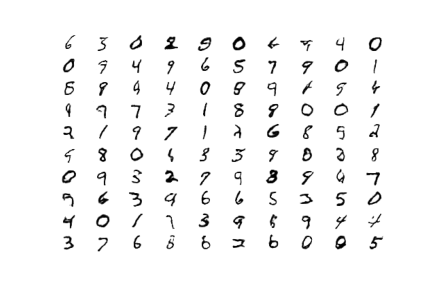 6 3 0 2 9 0 4 9 4 0
0 9 4 9 6 5 7 9 0 1
8 9 4 4 0 8 9 1 5 4
9 9 7 3 1 8 9 0 0 1
2 1 9 7 1 2 6 8 5 2
9 8 0 1 3 3 9 8 8
0 9 3 2 7 9 8 9 4 7
9 6 3 9 6 6 5 5 0
4 0 1 7 3 9 5 9 4
3 7 6 8 6 2 6 0 0 5